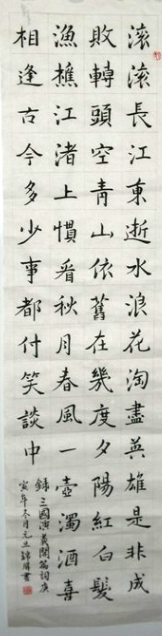 滚滚長江東逝水浪花淘盡英雄是非成
敗轉頭空青山依舊在幾度夕陽紅白髮
漁樵江渚上慣看秋月春風一壺濁酒喜
相逢古今多少事都付笑談中
錄三國演義開篇詞庚
寅年冬月元旦書